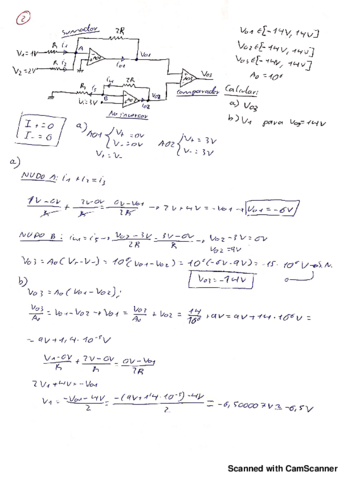 2
sumador
2R
V1=1V
V2=2V
V01
V03
comparador
V=3V
No inversor
V01 ∈ [-14V, 14V]
V02 ∈ [-14V, 14V]
V03 ∈ [-14V, 14V]
A0 = 10⁶
Calcular:
a) V03
b) V1 para V03=14V
I+=0
I-=0
a) A01 { V+=0V A02 { V+=3V
V-=0V V-=3V
V+=V-
a)
NUDO A: i1+i2=i3
1V-0V/R + 2V-0V/R = 0V-V01/2R → 2V+4V=-V01 → V01=-6V
NUDO B: V02-3V/2R = 3V-0V/R → V02-3V=6V
V02=9V
V03=A0(V+-V-)=10⁶(V01-V02)=10⁶(-6V-9V)=-15·10⁶V
V03=-14V
b)
V03=A0(V01-V02);
V03/A0=V01-V02→V01=V03/A0+V02=14/10⁶+9V=9V+14·10⁻⁶V=
=9V+1,4·10⁻⁵V
V1-0V/R + 2V-0V/R = 0V-V01/2R
2V1+4V=-V01
V1=-V01-4V/2=-(9V+14·10⁻⁶)-4V/2=-6,500007V≅-6,5V
Scanned with CamScanner